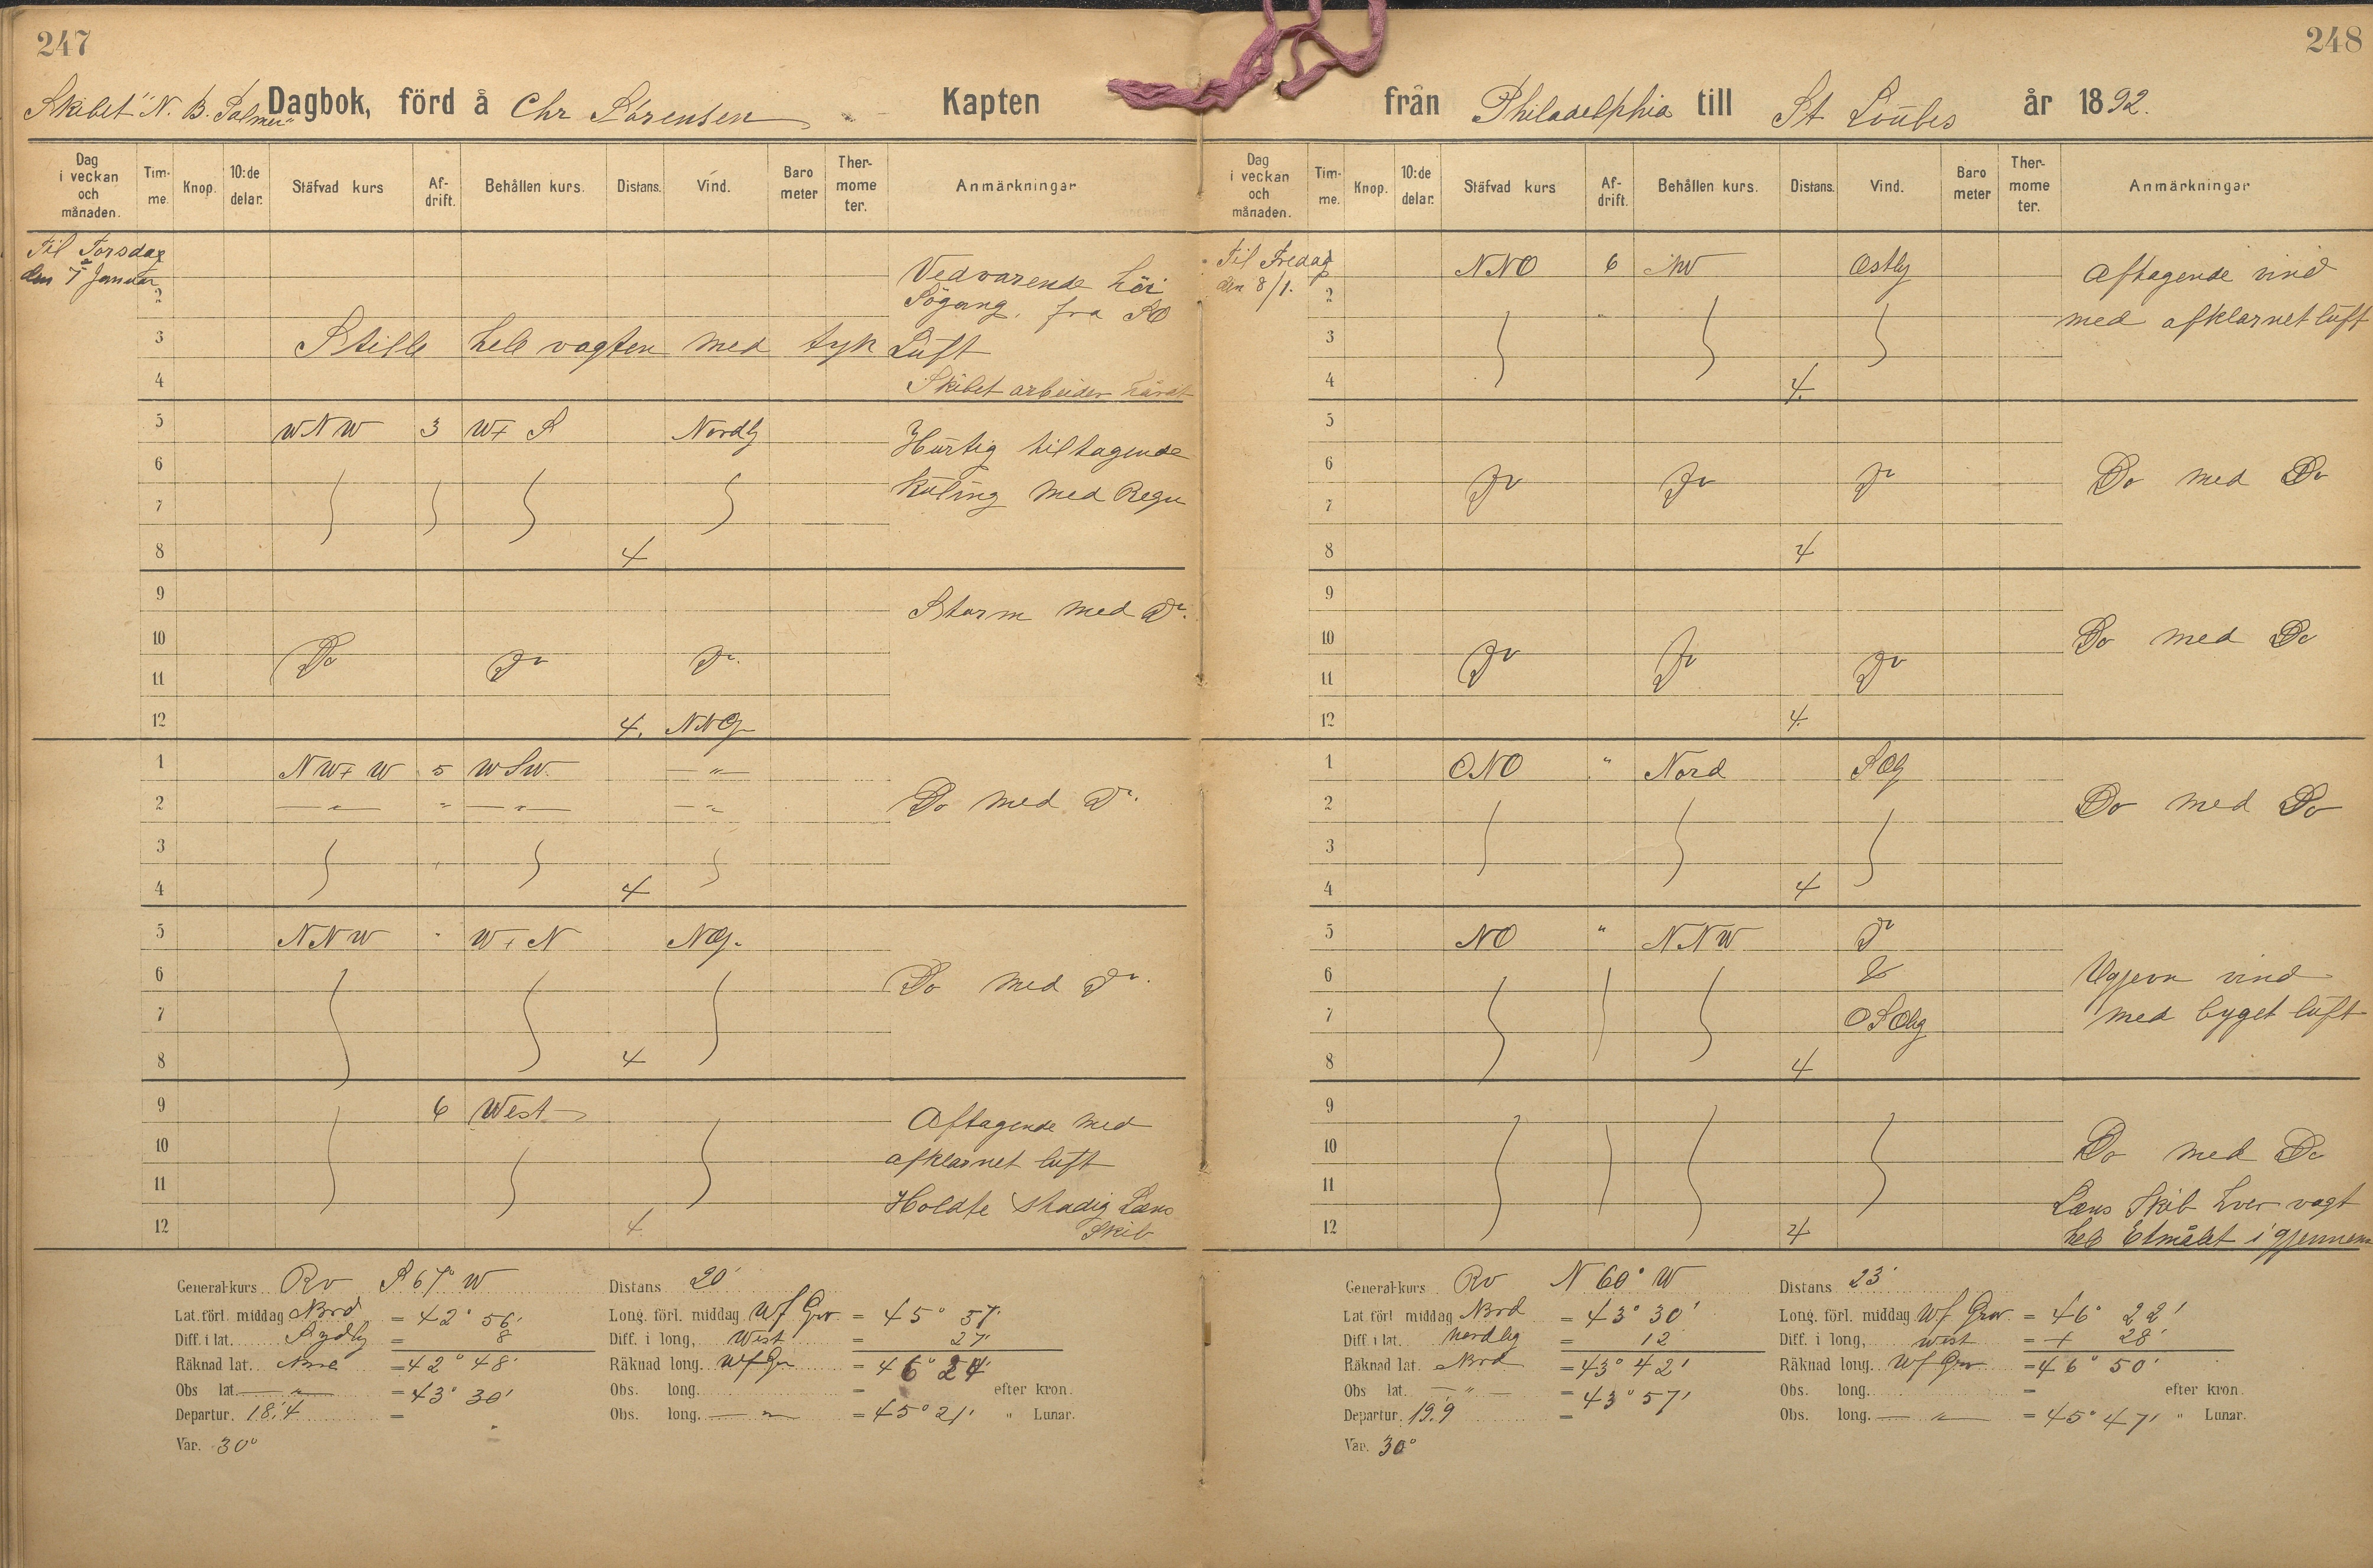 247
Skibet "N. B. Palmer" Dagbok, förd å Chr Sörensen Kapten
Dag i veckan och månaden. Tim-me. Knop. 10:de delar. Stäfvad kurs Af-drift. Behållen kurs. Distans. Vind. Baro meter Ther-mome ter. Anmärkningar
Til Torsdag
den 7 Januar
2
Vedvarende höi
Sögang, fra SO
3 Stille hele vagten med tyk Luft
4 Skibet arbeider hårdt
5 WNW 3 W+ S Nordlg
Hurtig tiltagende
6
Kuling med Regn
7
8 4
9
Storm med Do.
10 Do Do Do.
11
12 4. NNOlg
1 NW+ W 5 WSW. — " —
2 — " — " — " — — " —
Do med Do.
3
4 4
5 NNW " W+ N NOlg.
6
Do med Do.
7
8 4
9 6 West
Aftagende med
10
afklarnet luft
11
Holdte stadig Læns
12 4. Skib
General-kurs Rv S 67° W Distans 20'
Lat. förl. middag Nord = 42° 56' Long. förl. middag Wf Grw = 45° 57'
Diff. i lat. Sydlg = 8 Diff. i long, West = 27'
Räknad lat. Nord = 42° 48' Räknad long. Wf Gr = 46° 24'
Obs lat. — " — = 43° 30' Obs. long. = efter kron.
Departur. 18.4 = Obs. long. — " — = 45° 21' " Lunar.
Var. 30°
248
från Philadelphia till St Loubes år 1892.
Dag i veckan och månaden. Tim-me. Knop. 10:de delar. Stäfvad kurs Af-drift. Behållen kurs. Distans. Vind. Baro meter Ther-mome ter. Anmärkningar
Til Fredag
den 8/1.
NNO 6 NW Ostlg
Aftagende vind
2
med afklarnet luft
3
4 4.
5
6 Do Do Do Do med Do
7
8 4
9
10 Do Do Do Do med Do
11
12 4.
1 ONO " Nord SOlg
2
Do med Do
3
4 4
5 NO " NNW Do
6
Ugjevn vind
7 OSOlig med byget luft
8 4
9
10 Do med Do
11
Læns Skib hver vagt
12 4 hele Etmålet i gjennem
General-kurs Rv N 60° W Distans 23'
Lat förl middag Nord = 43° 30' Long. förl. middag Wf Grw = 46° 22'
Diff. i lat. nordlig = 12 Diff. i long, west = + 28'
Räknad lat. Nord = 43° 42' Räknad long. Wf Grw = 46° 50'
Obs lat. — " — = 43° 57' Obs. long. = efter kron.
Departur. 19.9 = Obs. long. — " — = 45° 47' " Lunar.
Var. 30°